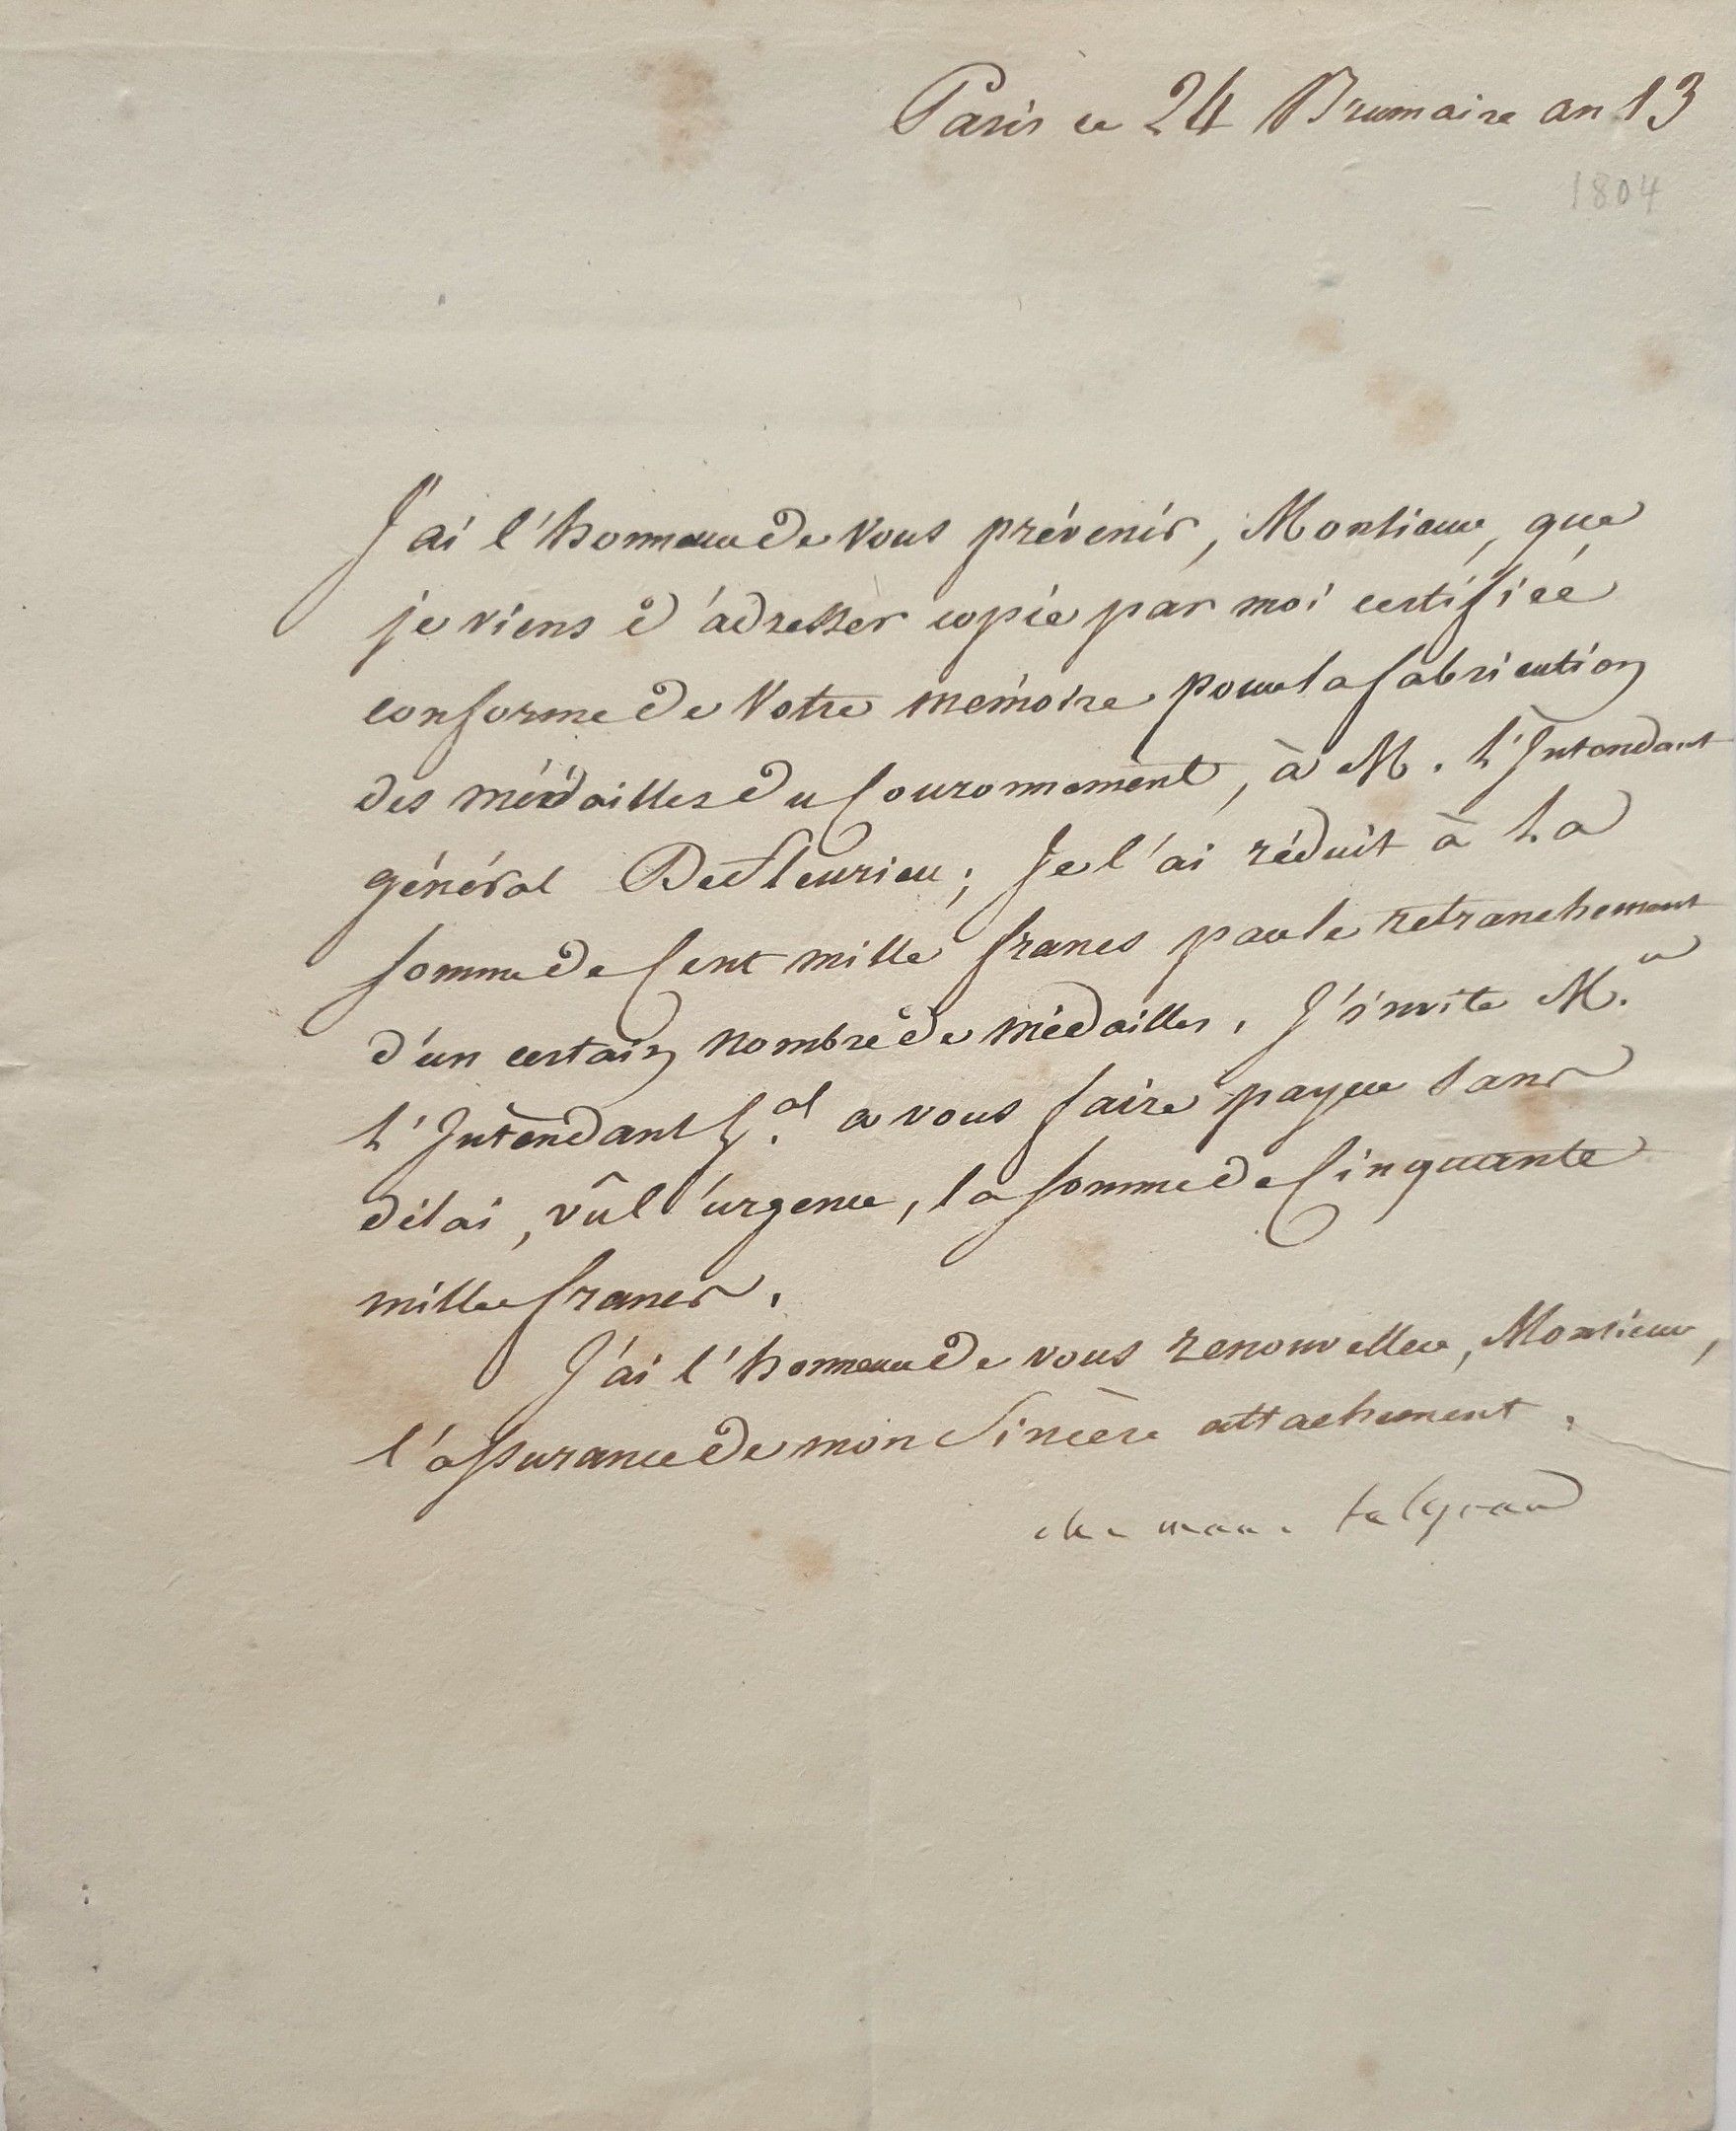 Paris ce 24 Brumaire an 13
1804
J'ai l'honneur de vous prévenir, Monsieur, que
je viens d'adresser copie par moi certifiée
conforme de Votre mémoire pour la fabrication
des médailles du Couronnement, à M. L'Intendant
général De Fleurieu; Je l'ai réduit à La
somme de Cent mille francs par le retranchement
d'un certain nombre de médailles. J'invite M.r
L'Intendant G.al a vous faire payer sans
délai, vû l'urgence, la somme de Cinquante
mille francs.
J'ai l'honneur de vous renouveller, Monsieur,
l'assurance de mon Sincère attachement.